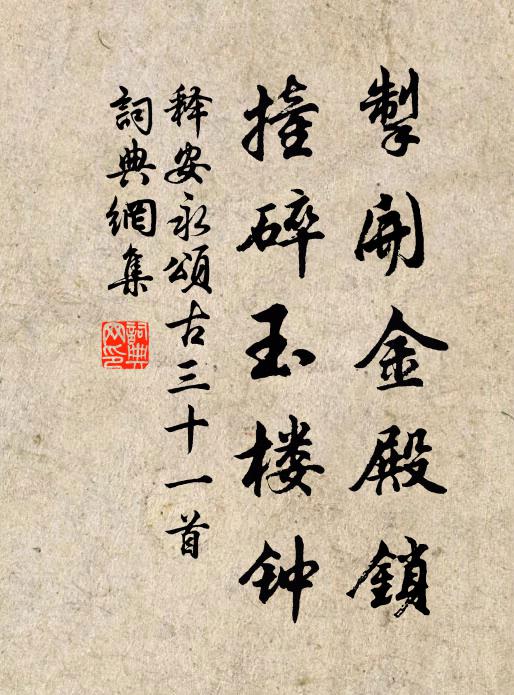 掣開金殿鎖
撞碎玉楼钟
释安永頌古三十一首
詞典網集
詞典网印